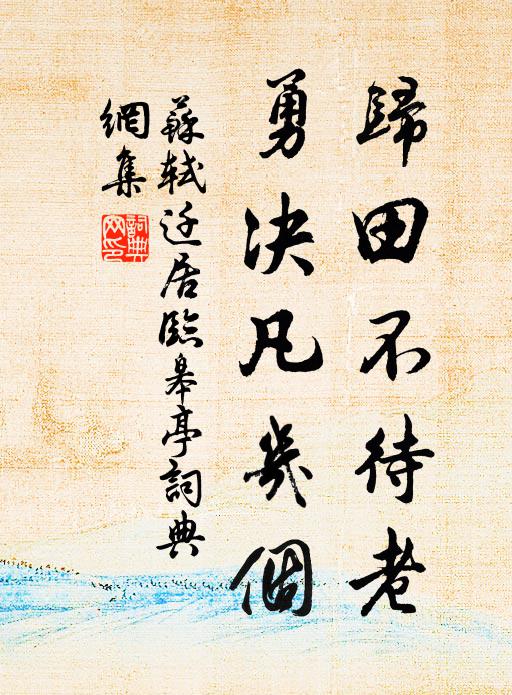 歸田不待老
勇决凡幾個
蘇軾迁居臨皋亭詞典
網集
詞典
网印